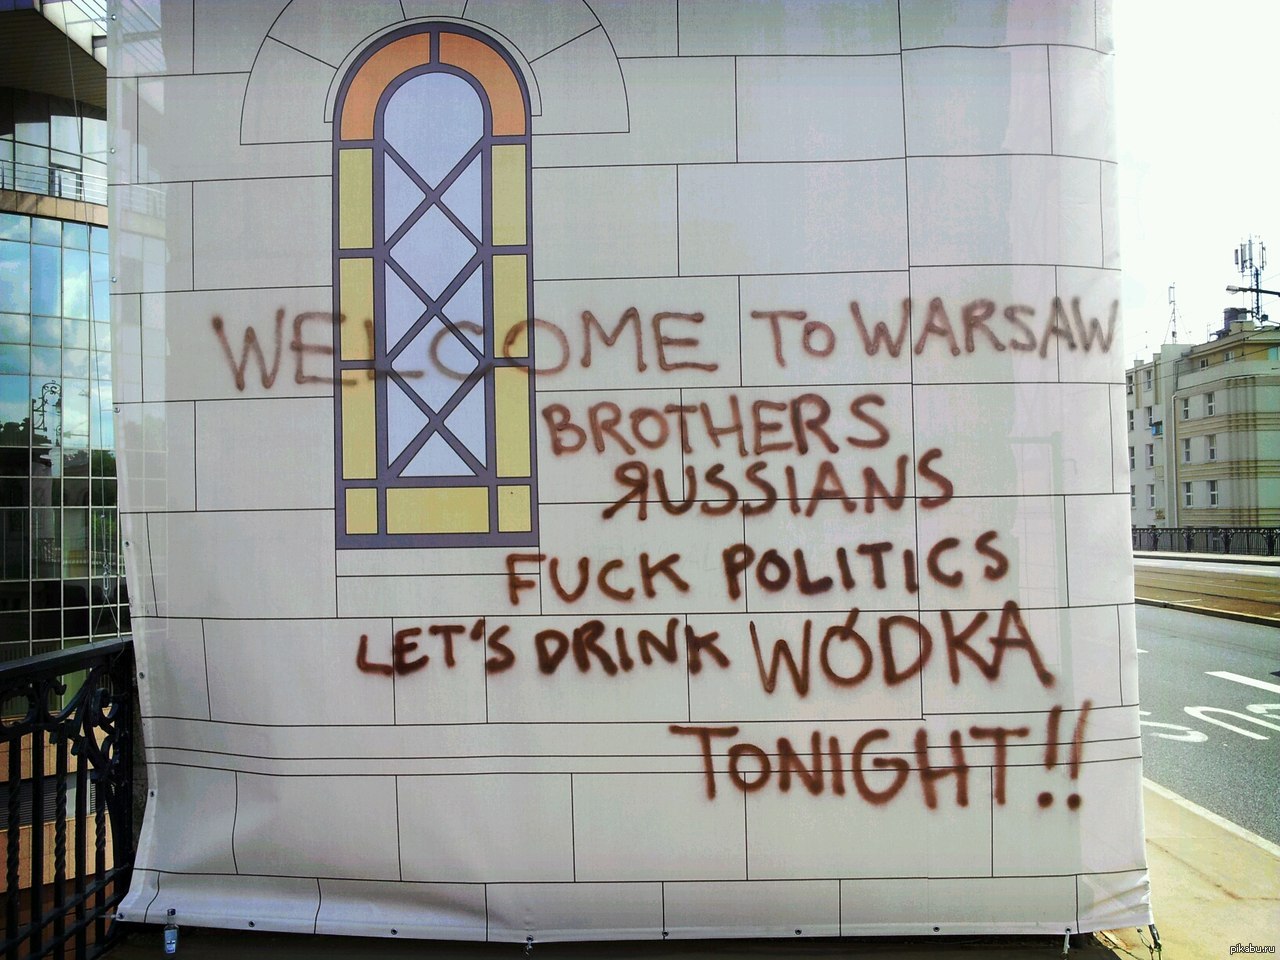 WELCOME TO WARSAW
BROTHERS
ЯUSSIANS
FUCK POLITICS
LET'S DRINK WÓDKA
TONIGHT!!
BUS
pikabu.ru